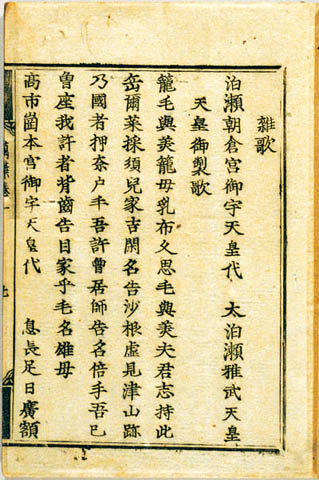 雜歌
泊瀬朝倉宮御宇天皇代　太泊瀬雅武天皇
天皇御製歌
籠毛與美籠母乳布久思毛與美夫君志持此
岳爾菜採須兒家吉閑名告沙根虛見津山跡
乃國者押奈户手吾許曽居師告名倍手吾已
曽座我許者背齒告目家乎毛名雄母
高市崗本宮御宇天皇代　息長足日廣額
萬葉卷一